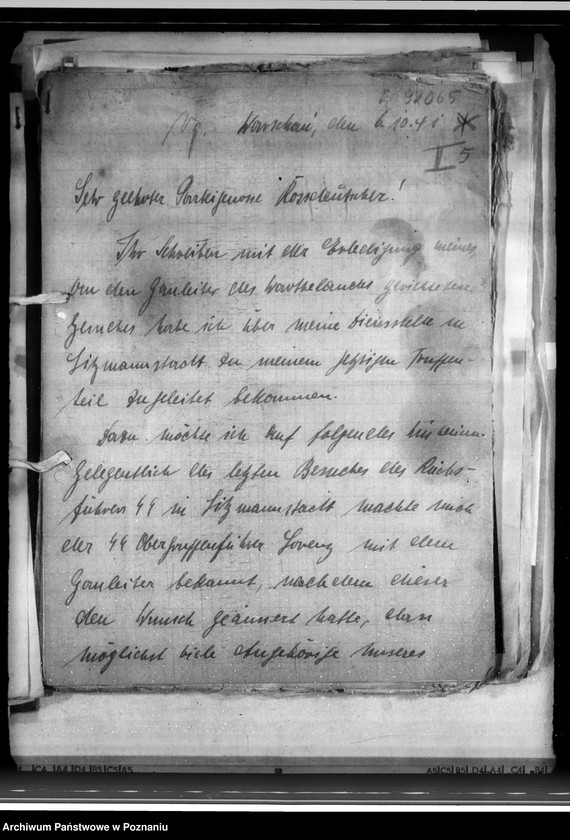 92065
Warschau, den 6.10.41
II 5
Sehr geehrter Parteigenosse
Ihr Schreiben mit der Erledigung meines
an den Gauleiter des Warthelandes gerichteten
Gesuches habe ich über meine Dienststelle in
Litzmannstadt zu meinem jetzigen Truppen-
teil zugeleitet bekommen.
Dazu möchte ich auf folgendes hinweisen.
Gelegentlich des letzten Besuches des Reichs-
führers SS in Litzmannstadt machte mich
der SS Obergruppenführer Lorenz mit dem
Gauleiter bekannt, nachdem dieser
den Wunsch geäussert hatte, dass
möglichst viele Angehörige unseres
Archiwum Państwowe w Poznaniu